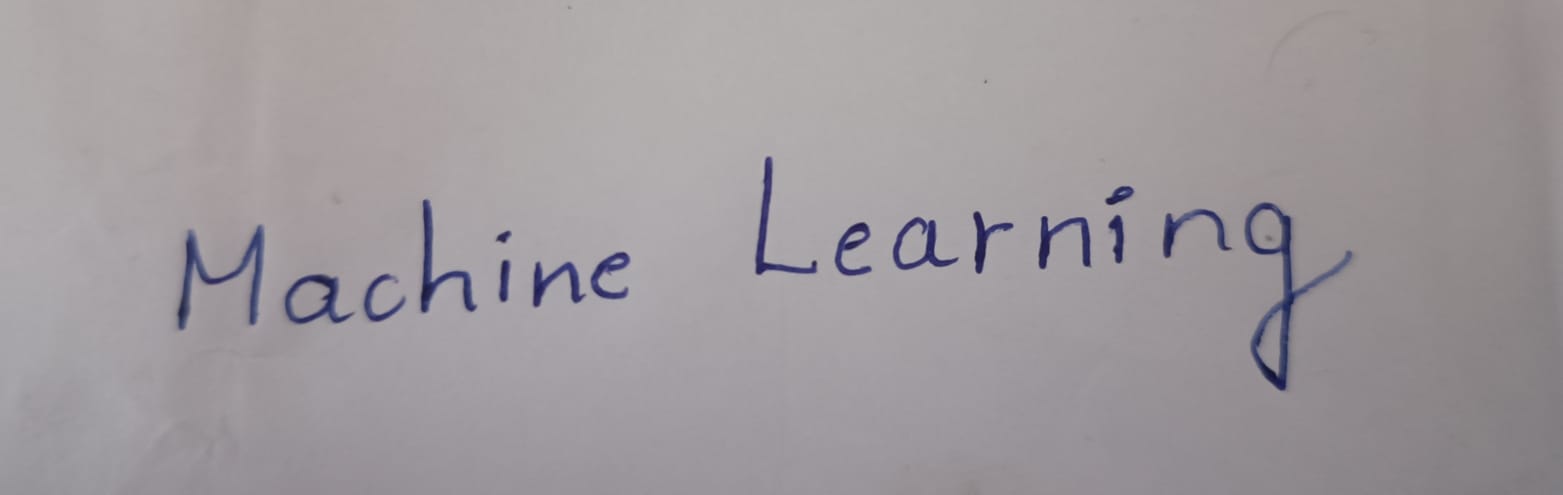 Machine Learning